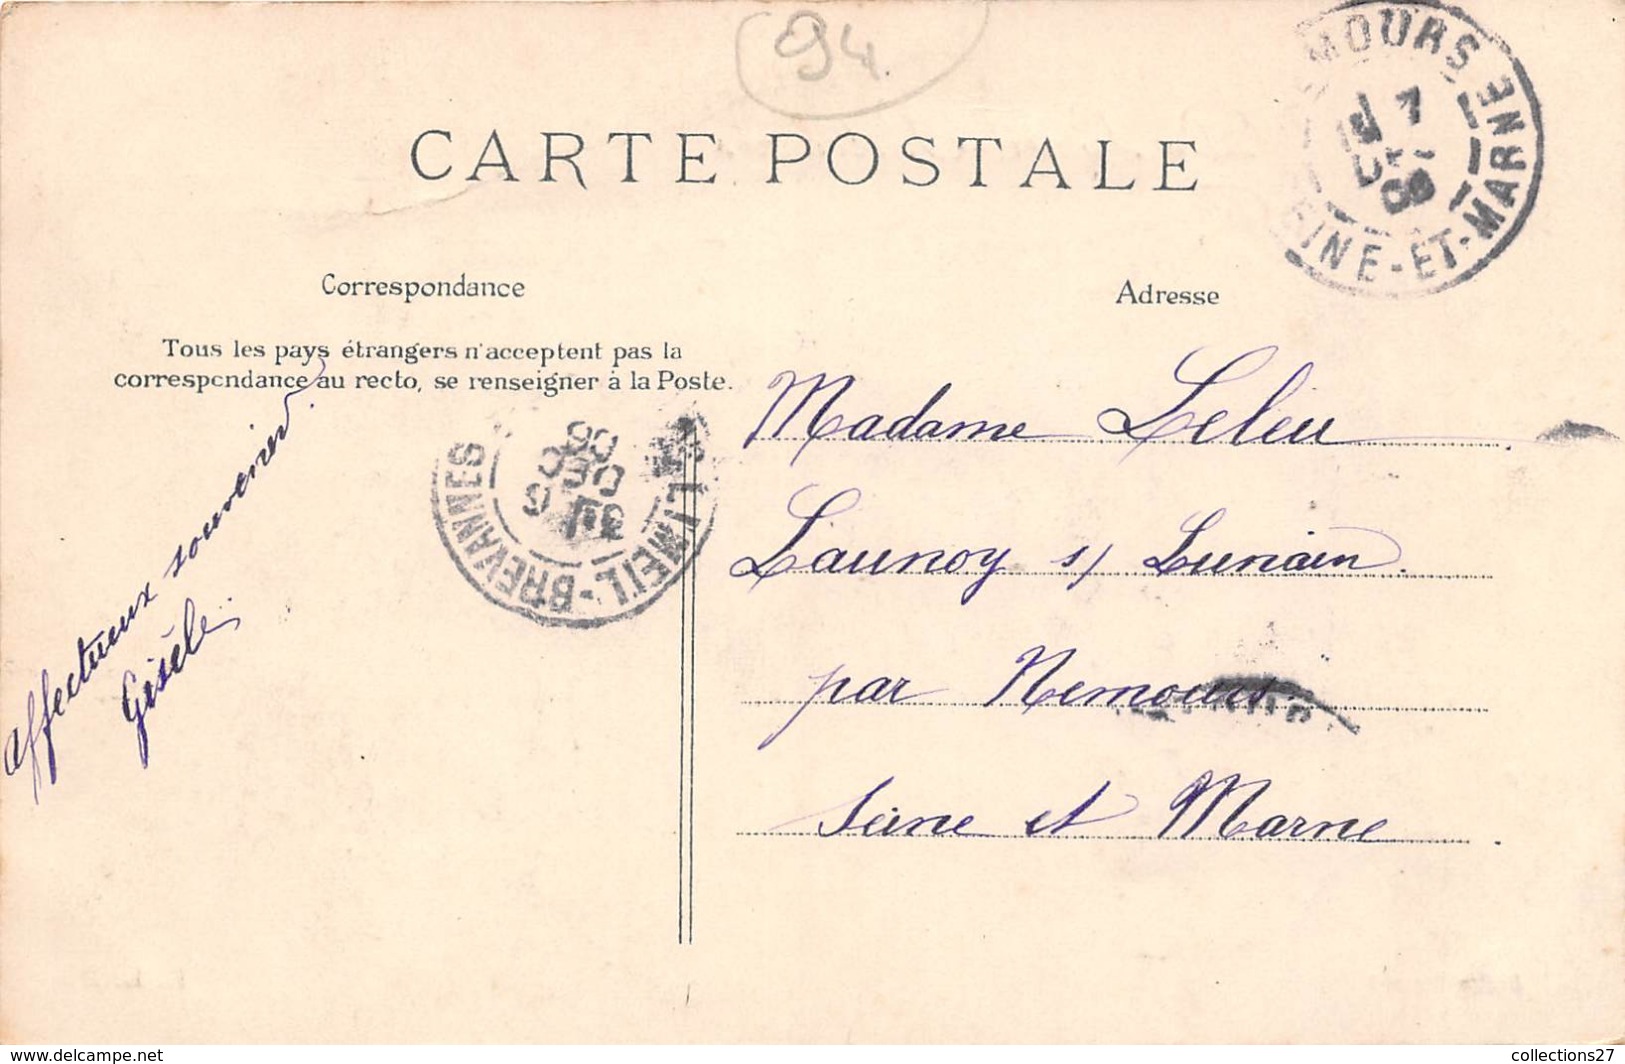 94.
CARTE POSTALE
Correspondance
Tous les pays étrangers n'acceptent pas la
correspondance au recto, se renseigner à la Poste.
affectueux souvenir
Gisèle
Adresse
Madame Leleu
Launoy s/ Lunain.
par Nemours.
Seine et Marne.
MOURS
INE-ET-MARNE
LIMEIL-BREVANNES
www.delcampe.net
collections27